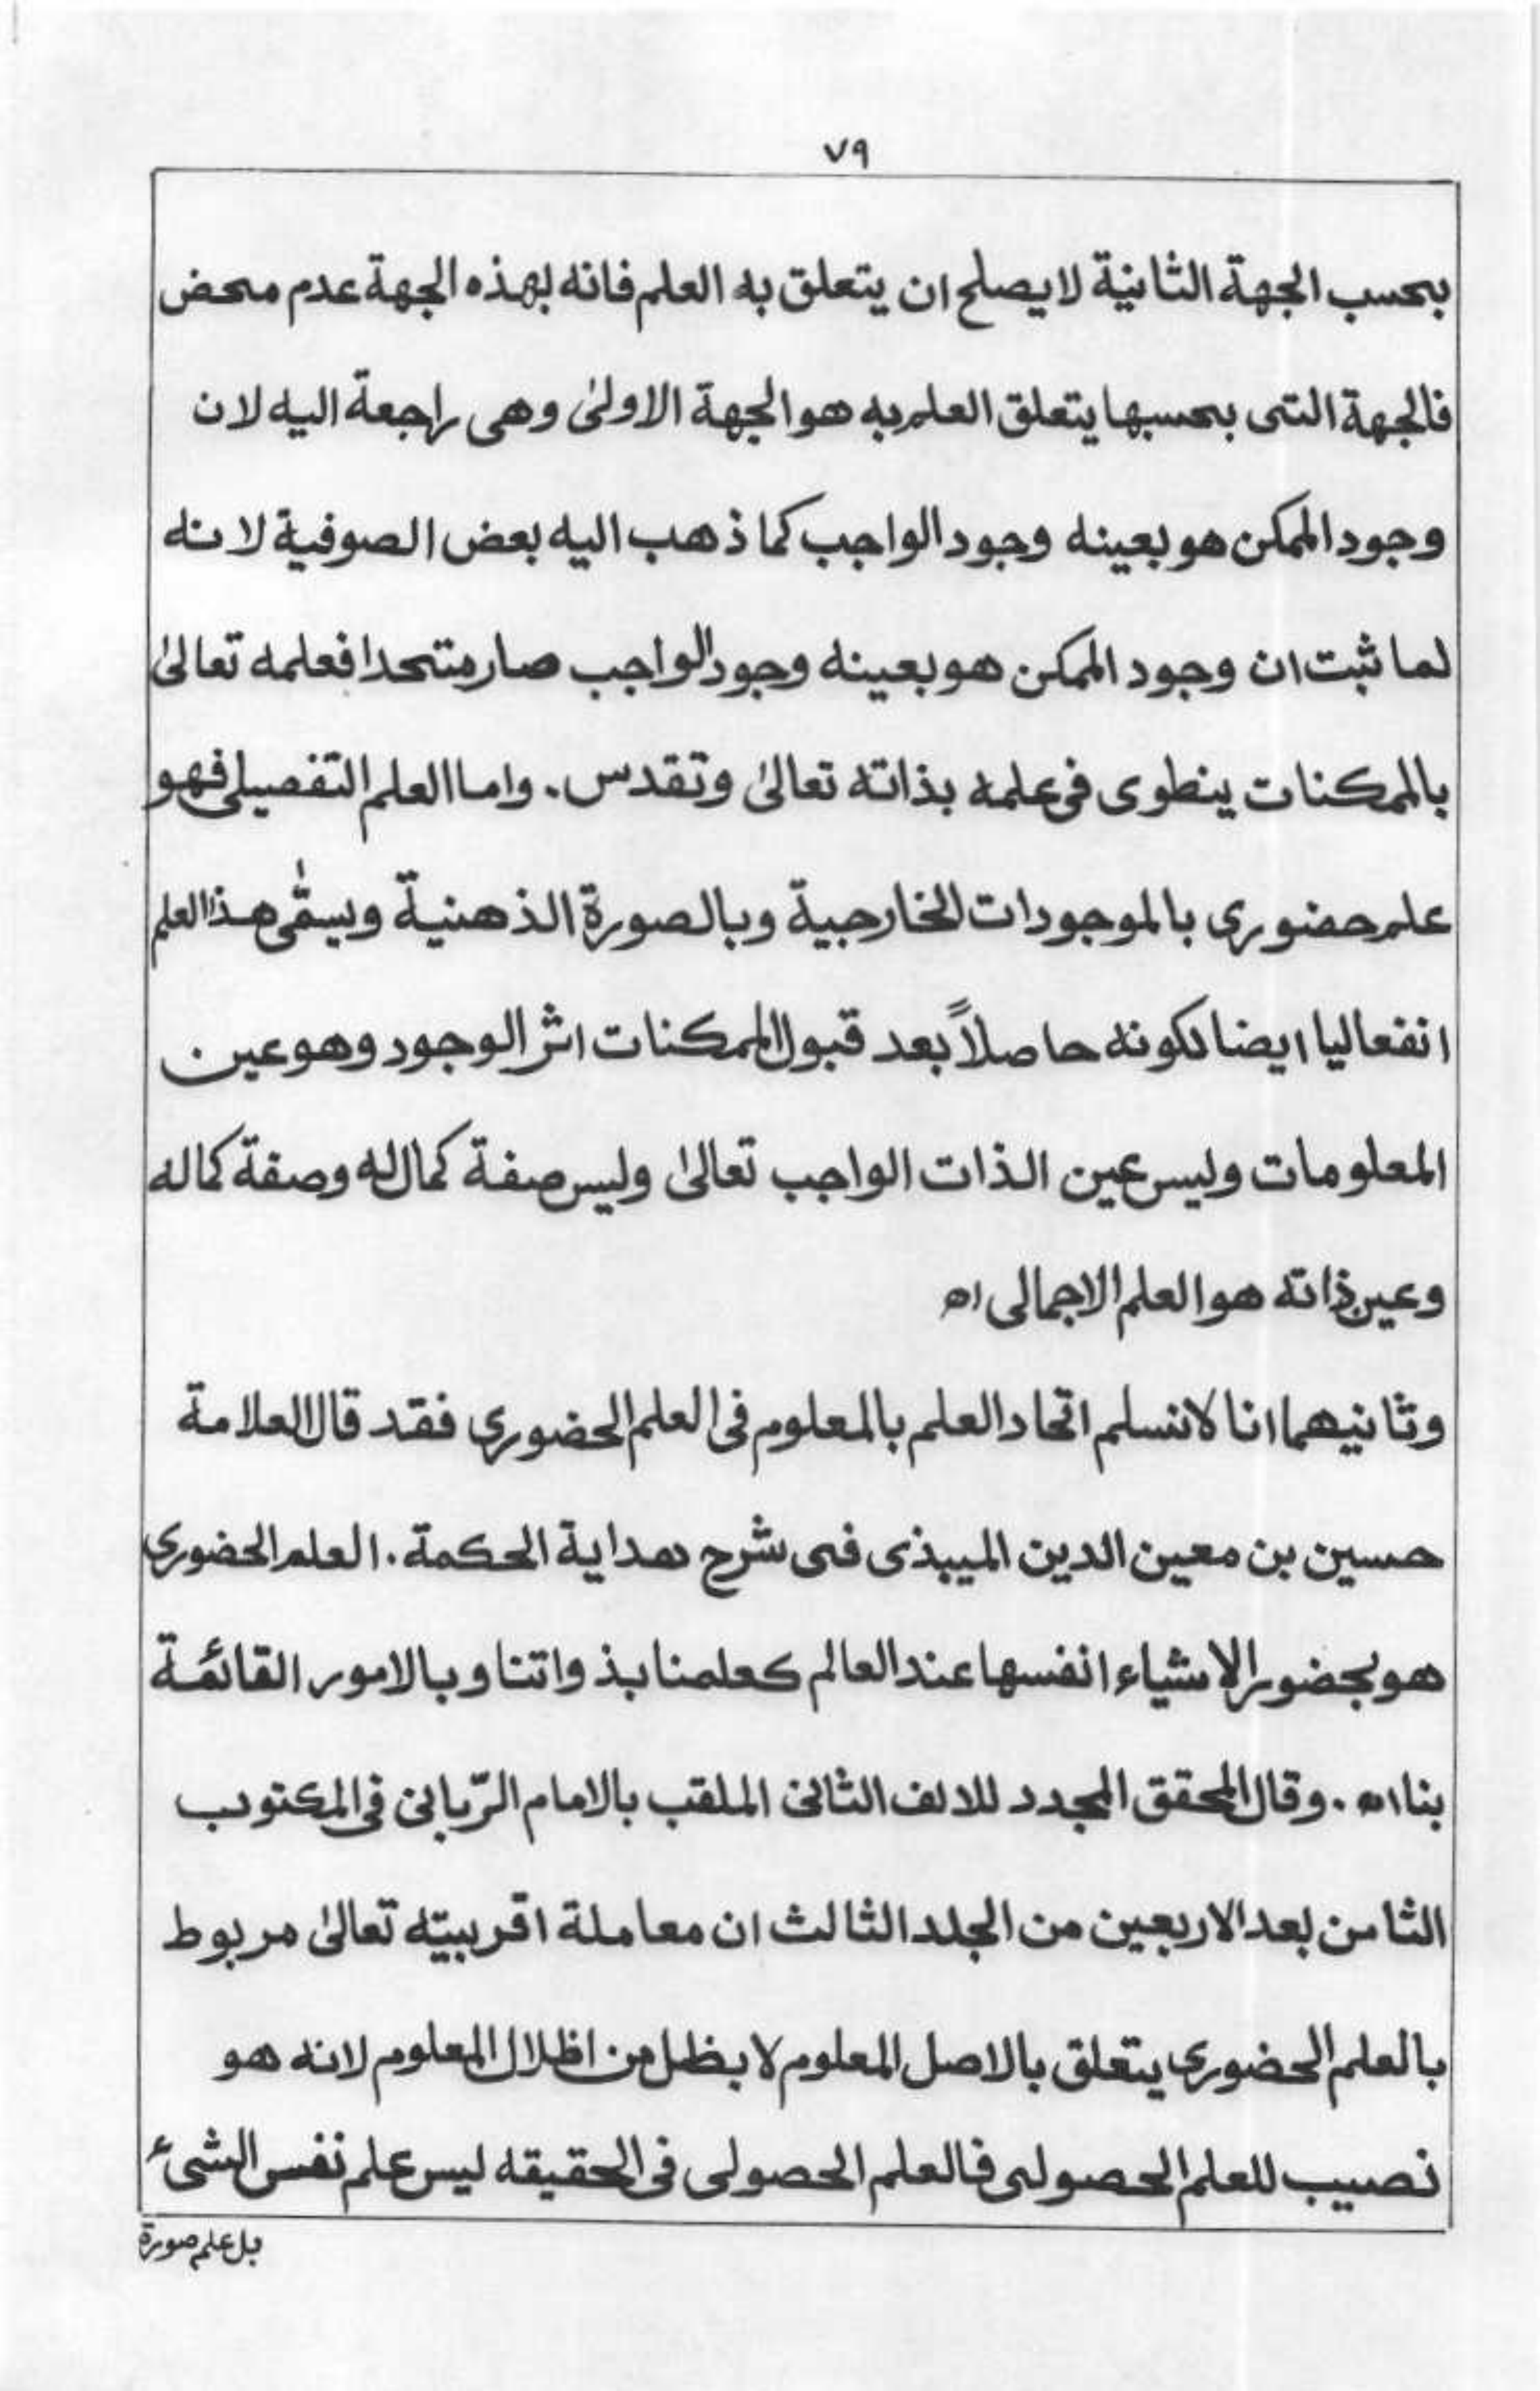 ٧٩
بحسب الجهة الثانية لا يصلح ان يتعلق به العلم فانه بهذه الجهة عدم محض
فالجهة التى بحسبها يتعلق العلم به هو الجهة الاولىٰ وهى راجعة اليه لان
وجود الممكن هو بعينه وجود الواجب كما ذهب اليه بعض الصوفية لانه
لما ثبت ان وجود الممكن هو بعينه وجود الواجب صار متحدا فعلمه تعالىٰ
بالممكنات ينطوى فى علمه بذاته تعالىٰ وتقدس. واما العلم التفصيلى فهو
علم حضورى بالموجودات الخارجية وبالصورة الذهنية ويسمّٰى هذا العلم
انفعاليا ايضا لكونه حاصلاً بعد قبول الممكنات اثر الوجود وهو عين
المعلومات وليس عين الذات الواجب تعالىٰ وليس صفة كمال له وصفة كماله
وعين ذاته هو العلم الاجمالى اه
وثانيهما انا لا نسلم اتحاد العلم بالمعلوم فى العلم الحضورى فقد قال العلامة
حسين بن معين الدين الميبذى فى شرح هداية الحكمة. العلم الحضورى
هو بحضور الاشياء انفسها عند العالم كعلمنا بذواتنا وبالامور القائمة
بنا اه. وقال المحقق المجدد للالف الثانى الملقب بالامام الرّبانى فى المكتوب
الثامن بعد الاربعين من الجلد الثالث ان معاملة اقربيّته تعالىٰ مربوط
بالعلم الحضورى يتعلق بالاصل المعلوم لا بظل من اظلال المعلوم لانه هو
نصيب للعلم الحصولى فالعلم الحصولى فى الحقيقه ليس علم نفس الشىء
بل علم صورة